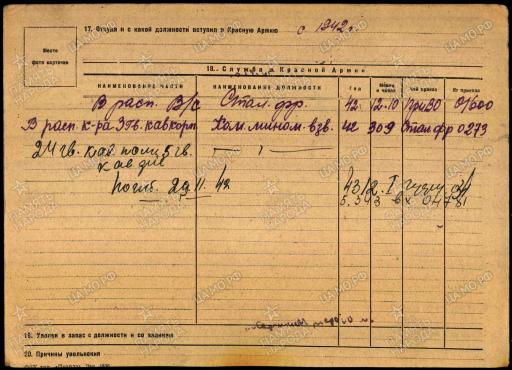 17. Откуда и с какой должности вступил в Красную Армию с 1942 г.
Место
фото карточки
18. Служба в Красной Армии
НАИМЕНОВАНИЕ ЧАСТИ НАИМЕНОВАНИЕ ДОЛЖНОСТИ Год Месяц и число Чей приказ № приказа
В расп. В/С Стал. фр. 42. 12.10 ПриВО 01600
В расп. к-ра 3 гв. кавкорп. Ком. мином. взв. 42 30.9 Стал фр 0273
24 гв. кав. полк 5 гв.
кав див
погиб. 29.11.42. 43
5.3 43
19. Уволен в запас с должности и со званием
20. Причины увольнения